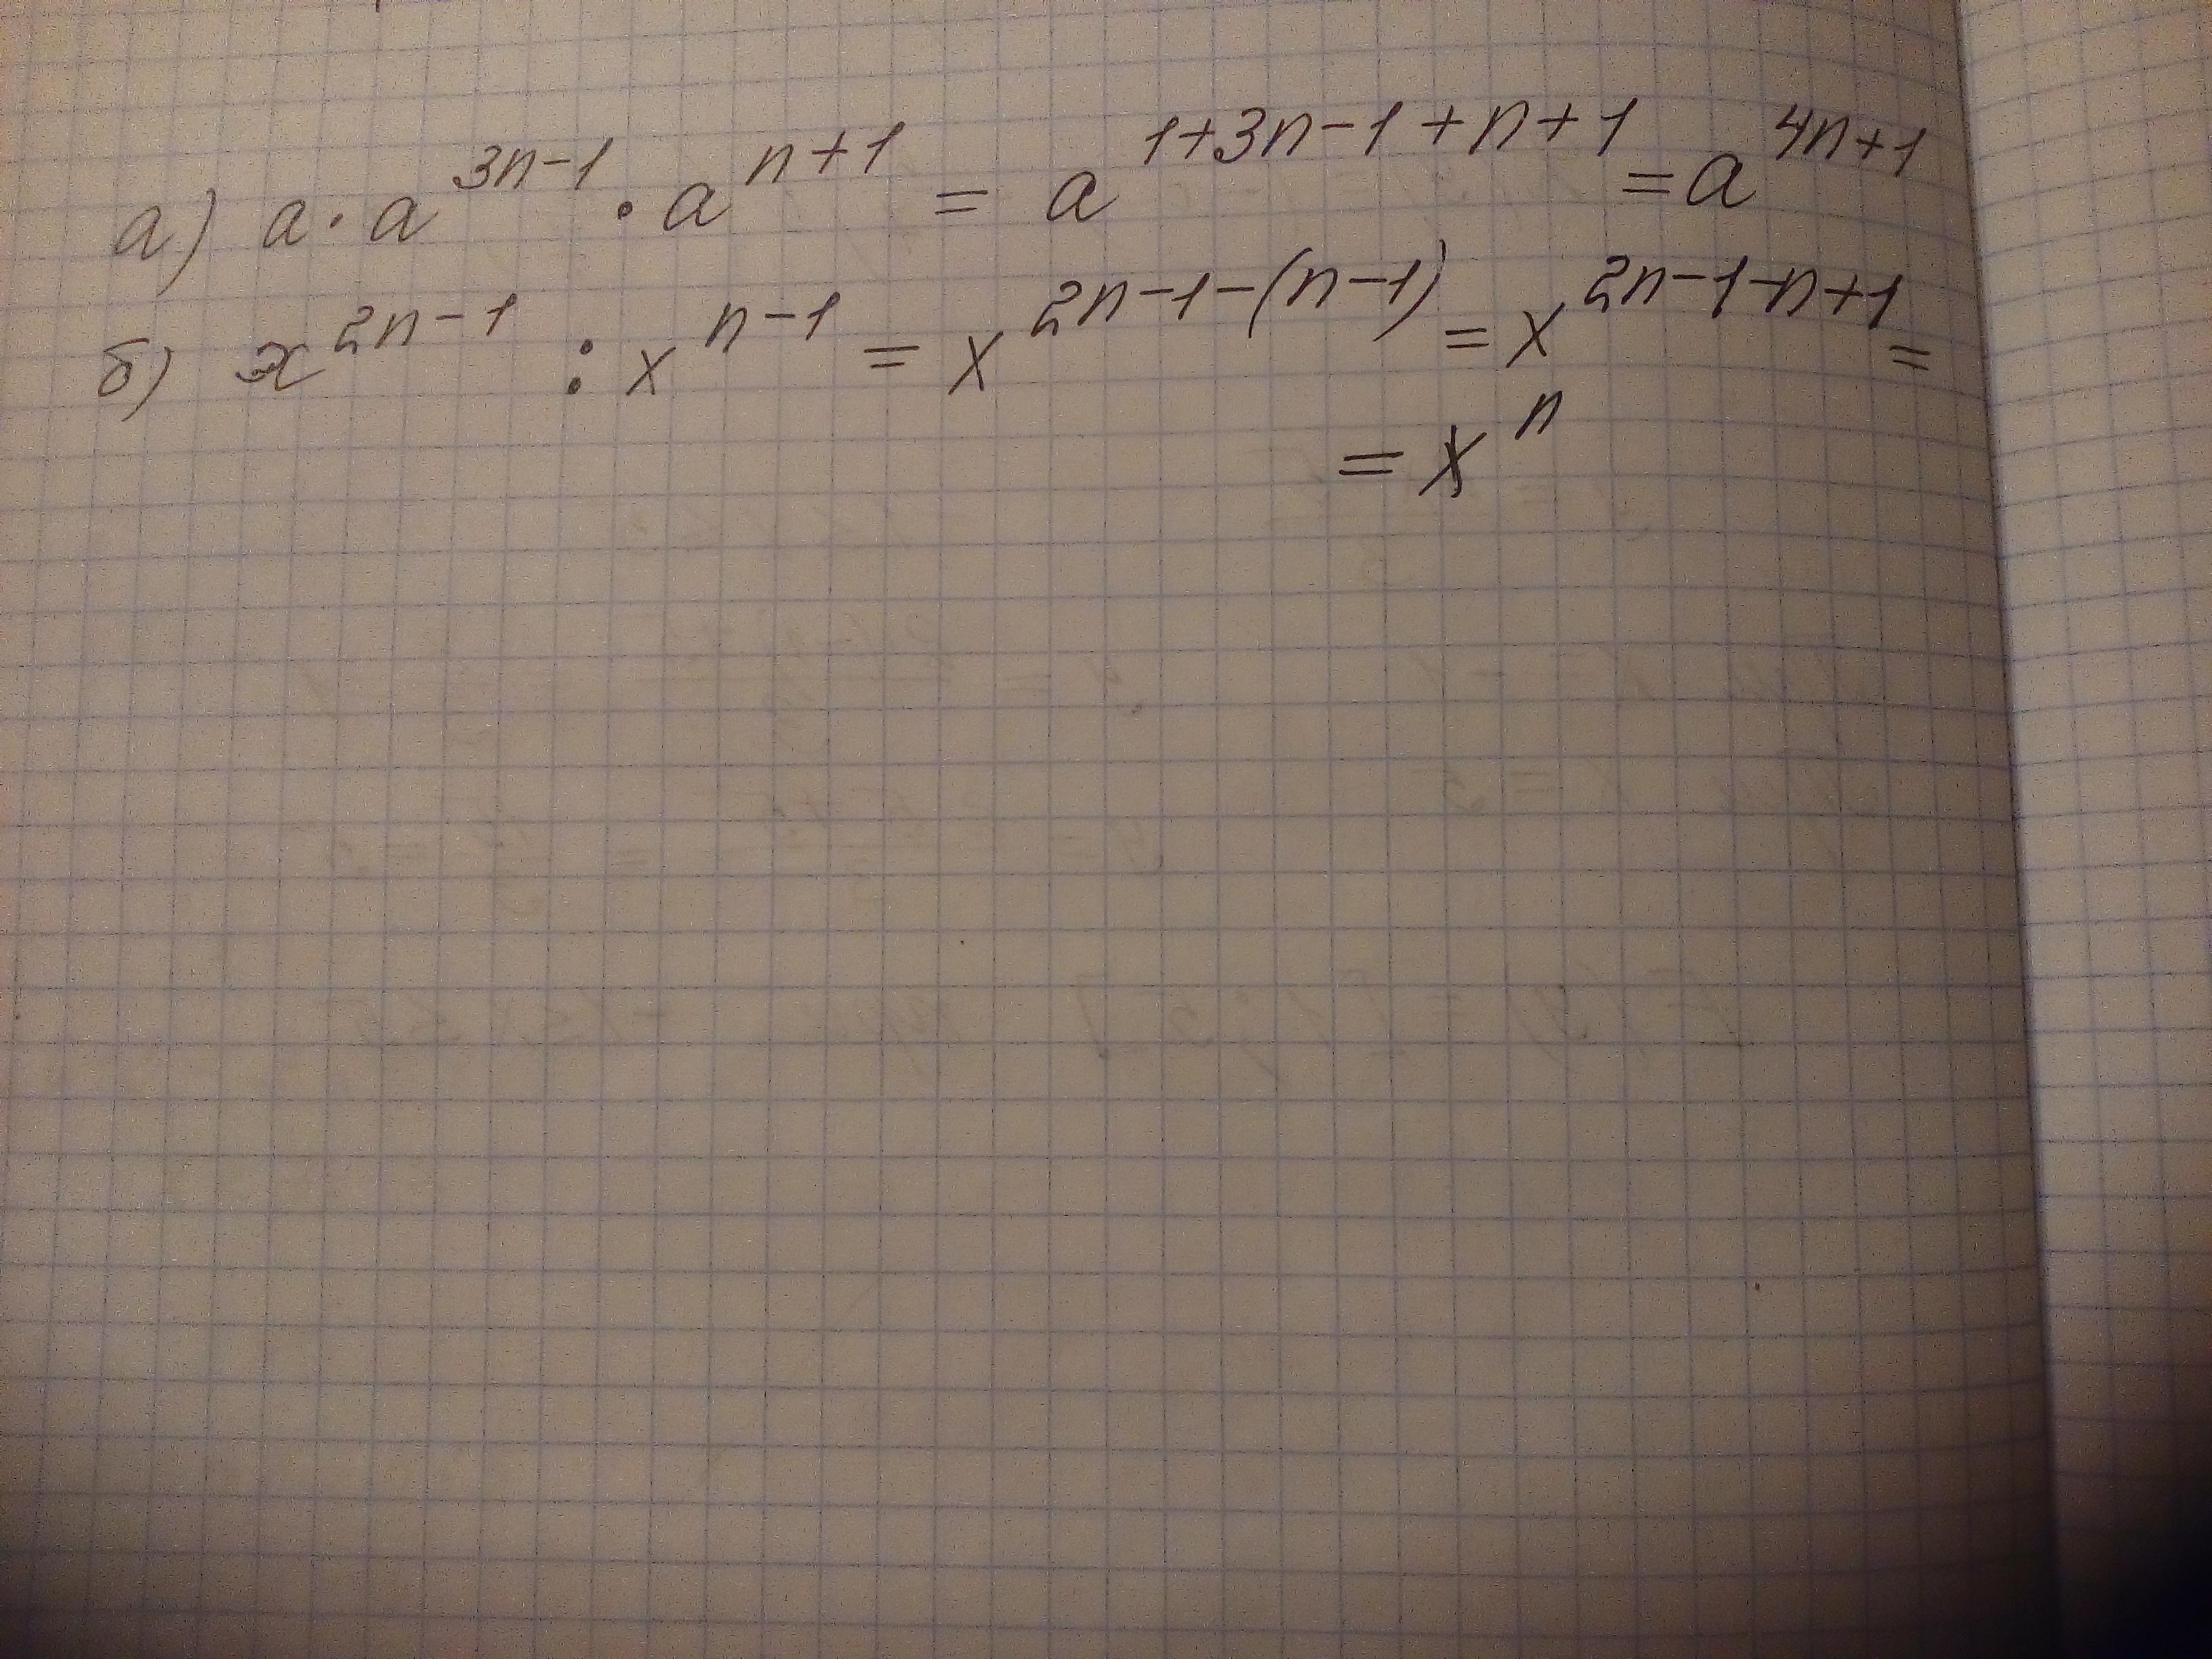 а) a · a^{3n-1} · a^{n+1} = a^{1+3n-1+n+1} = a^{4n+1}
б) x^{2n-1} : x^{n-1} = x^{2n-1-(n-1)} = x^{2n-1-n+1} =
= x^n